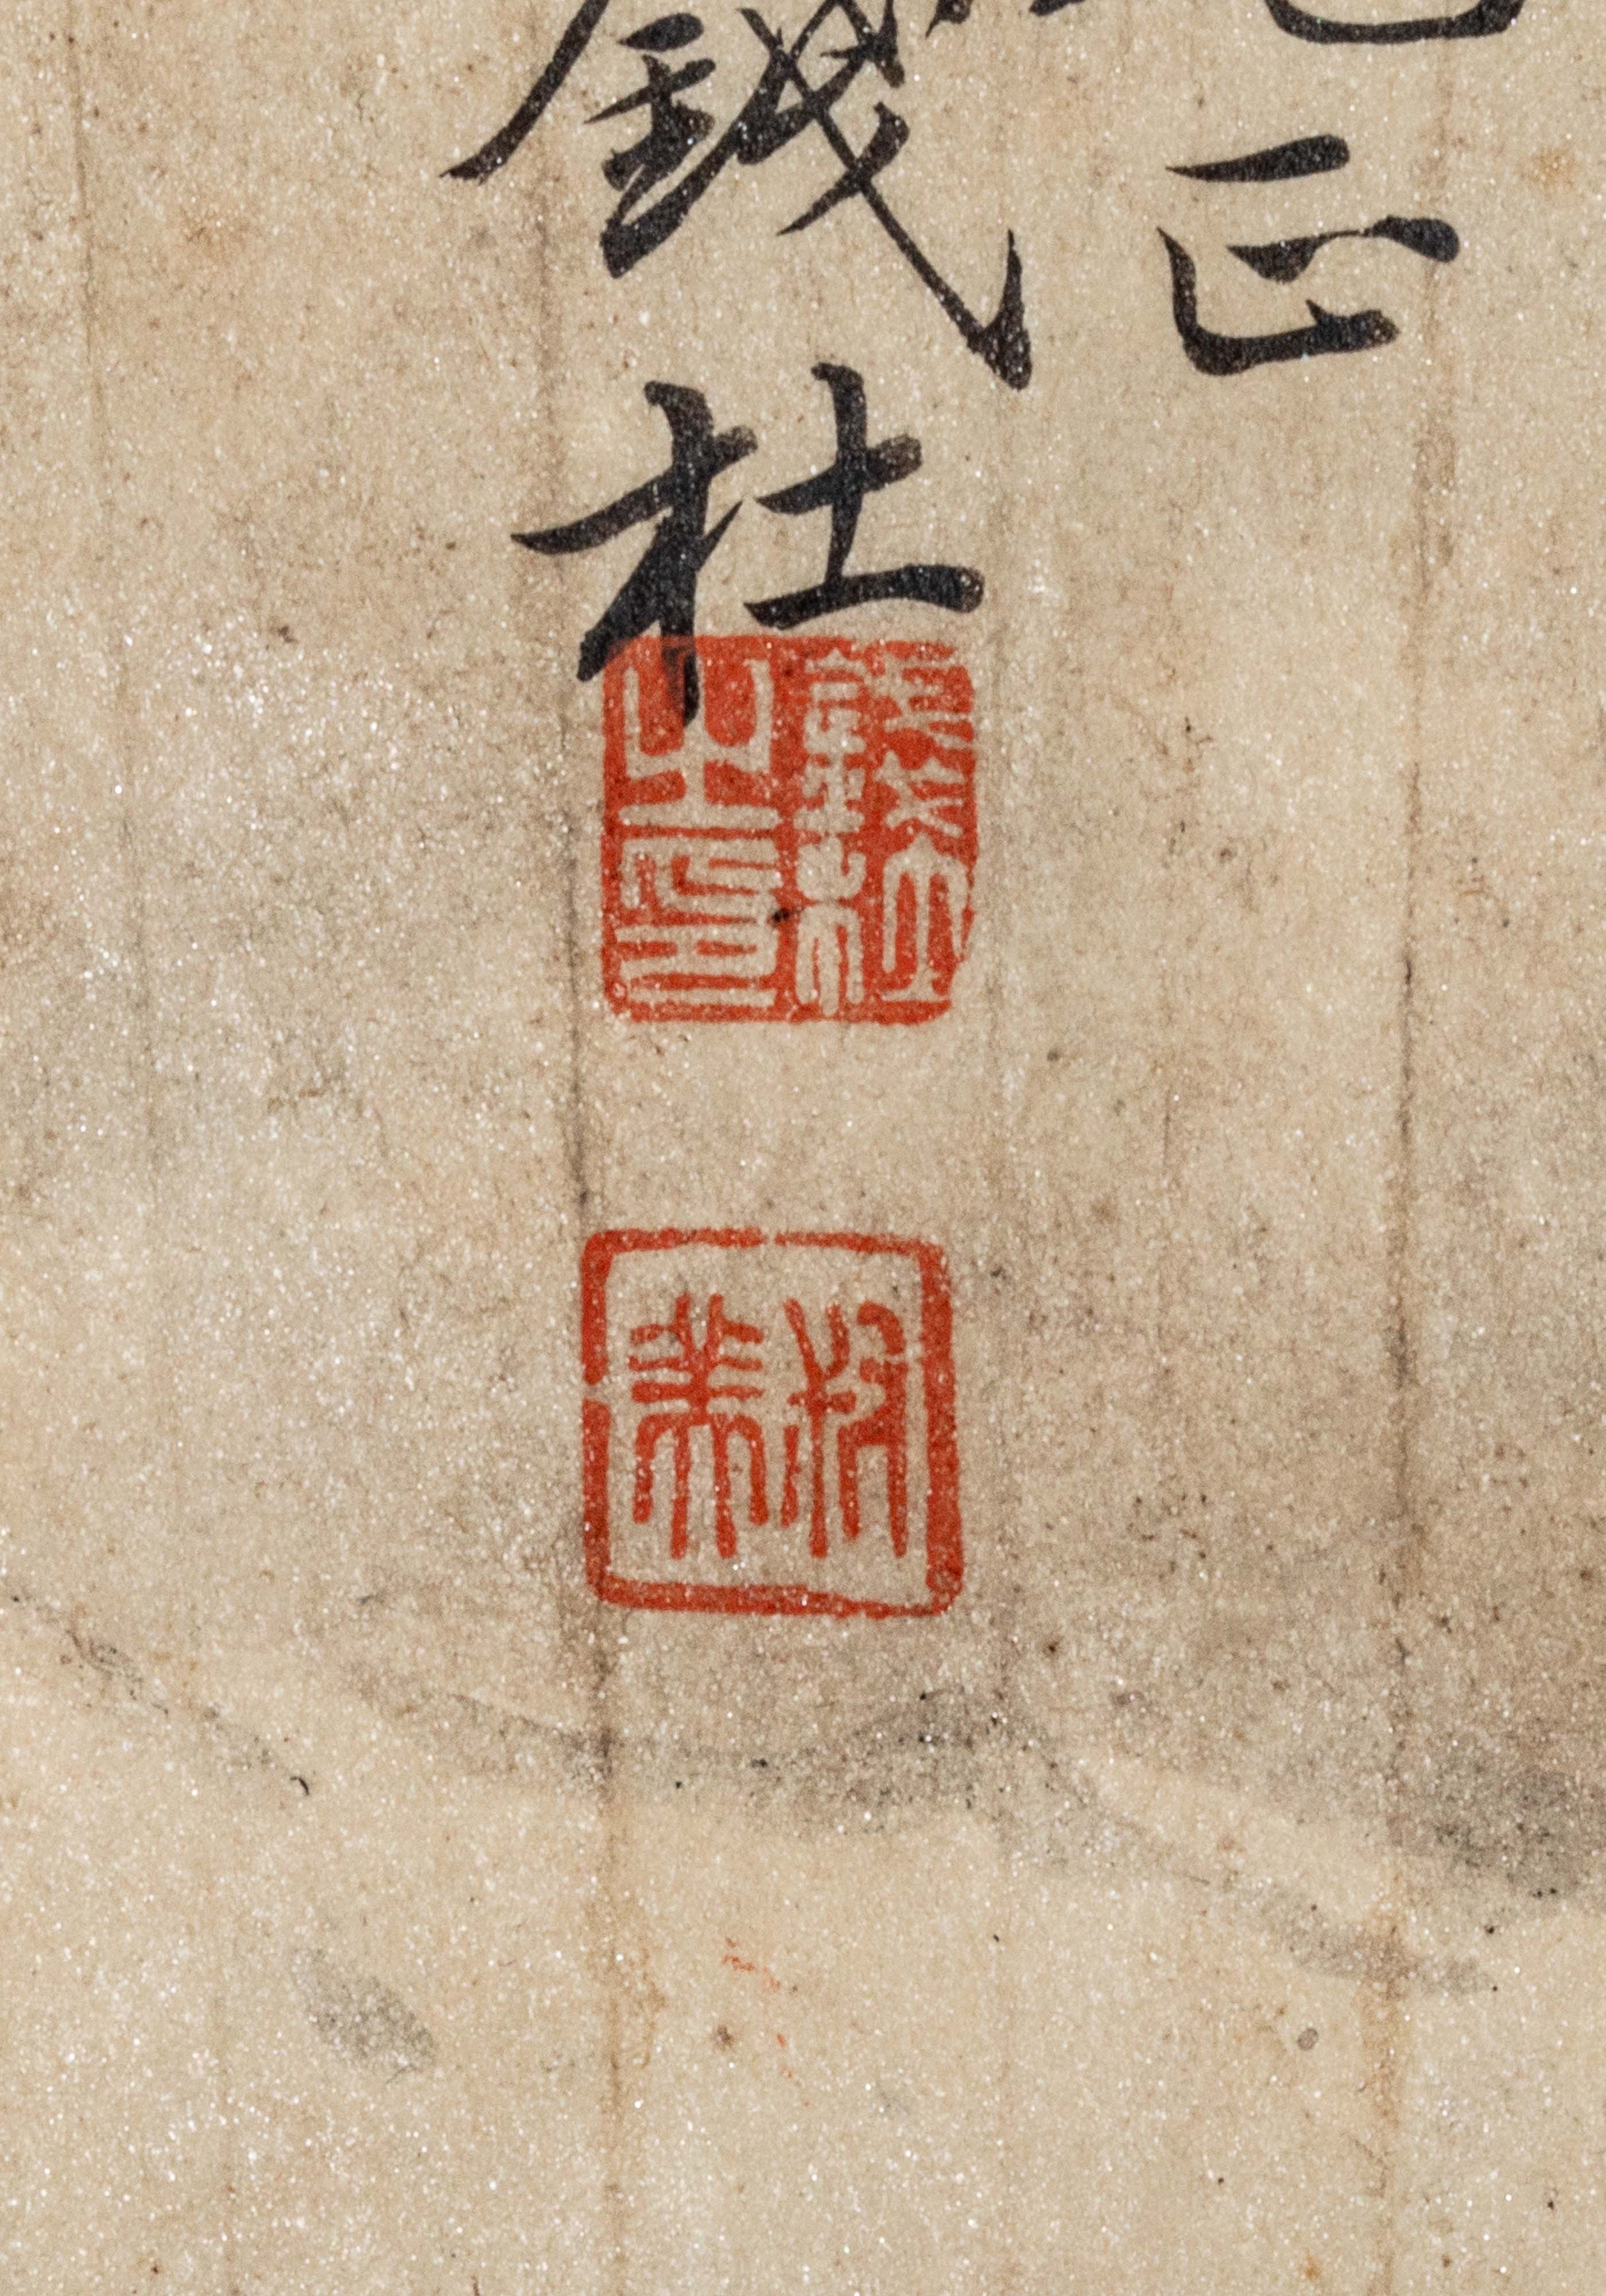 正
錢杜
錢杜之印
叔美